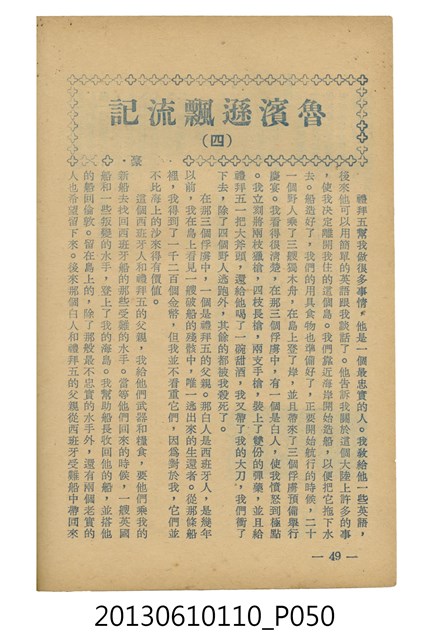 魯濱遜飄流記
(四)
·豪·
禮拜五幫我做很多事情，他是一個最忠實的人。我敎給他一些英語，
後來他可以用簡單的英語跟我談話了。他告訴我關於這個大陸上許多的事
，使我決定離開我住的這個島。我們靠近海岸開始造船，以便把它拖下水
去。船造好了，我們的用具食物也準備好了，正要開始航行的時候，二十
一個野人乘了三艘獨木舟，在島上登了岸，並且帶來了三個俘虜預備舉行
慶宴。我看得很清楚，在那三個俘虜中，有一個是白人，使我憤怒到極點
。我立刻將兩枝獵槍，四枝長槍，兩支手槍，裝上了雙份的彈藥，並且給
禮拜五一把大斧頭，還給他喝了一碗甜酒，我又帶了我的大刀，我們衝了
下去，除了四個野人逃跑外，其餘的都被我殺死了。
在那三個俘虜中，一個是禮拜五的父親。那白人是西班牙人，是幾年
以前，我在島上看見一艘破船的殘骸中，唯一逃出來的生還者。從那條船
裡，我得到了一千二百個金幣，但我並不看重它們，因爲對於我，它們並
不比海上的沙來得有價値。
這個西班牙人和禮拜五的父親，我給他們武器和糧食，要他們乘我的
新船去找回西班牙船的那些受難的水手。當等他們回來的時候，一艘英國
船和一些叛變的水手，登上了我的海島。我幫助船長收回他的船，並搭他
的船回倫敦。留在島上的，除了那般最不忠實的水手外，還有兩個老實的
人也希望留下來。後來那個白人和禮拜五的父親從西班牙受難船中帶回來
— 49 —
20130610110_P050